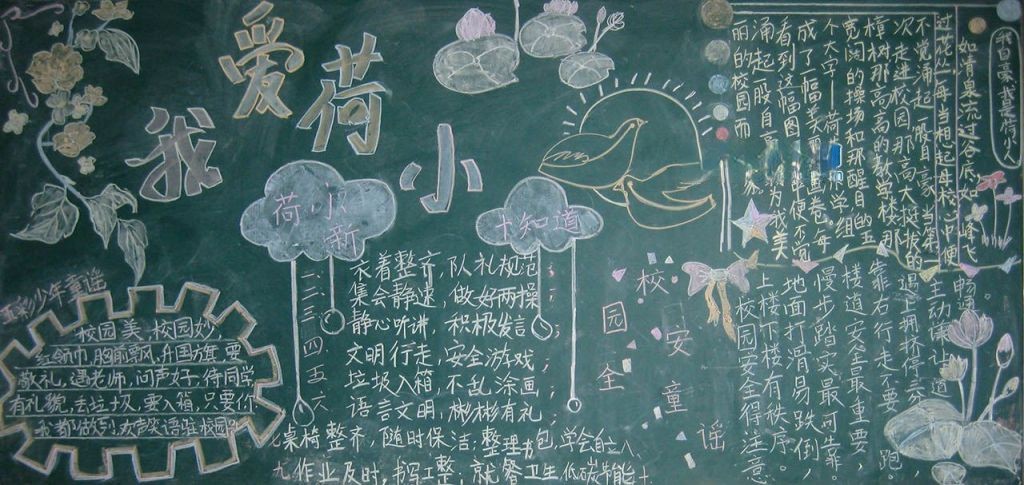 我爱荷小
荷小新
十知道
一、衣着整齐，队礼规范；
二、集会静速，做好两操；
三、静心听讲，积极发言；
四、文明行走，安全游戏；
五、垃圾入箱，不乱涂画；
六、语言文明，彬彬有礼；
桌椅整齐，随时保洁；整理书包，学会自立、
九作业及时，书写工整，就餐卫生 低碳节能十
五彩少年童谣
校园美、校园妙
红领巾，胸前飘，升国旗，要
敬礼，遇老师，问声好，待同学
有礼貌，去垃圾，要入箱，只要你
我都做到，欢声笑语驻校园。
校园安全童谣
我自豪，我是荷小人
如青泉流过谷底
过花丛每当想起母校心中便
不觉涌起一股自豪，当第一
次走进校园那高大挺拔的
樟树那高高的教学楼那
宽阔的操场和那醒目的五
个大字—荷
成了一幅美丽画卷每
看到这幅图 便不觉
涌起一股自
丽的校园而
为我美
畅通
主动礼让道
遇上拥挤停
靠右行走不要跑。
楼道安全最重要，
慢步踏实最可靠。
地面打滑易跌倒，
上楼下楼有秩序。
校园安全得注意